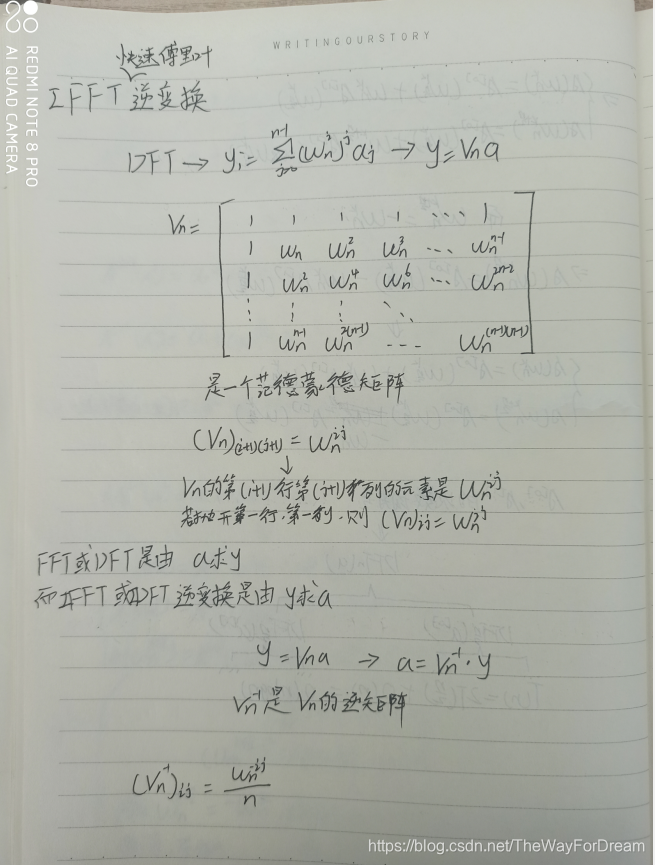 WRITINGOURSTORY
快速傅里叶
IFFT 逆变换
DFT → yᵢ = Σ_{j=0}^{n-1} (ωₙⁱ)ʲ aⱼ → y = Vₙa
Vₙ =
1 1 1 1 ⋯ 1
1 ωₙ ωₙ² ωₙ³ ⋯ ωₙⁿ⁻¹
1 ωₙ² ωₙ⁴ ωₙ⁶ ⋯ ωₙ²ⁿ⁻²
⋮ ⋮ ⋮ ⋱
1 ωₙⁿ⁻¹ ωₙ²⁽ⁿ⁻¹⁾ ⋯ ωₙ⁽ⁿ⁻¹⁾⁽ⁿ⁻¹⁾
是一个范德蒙德矩阵
(Vₙ)(i+1)(j+1) = ωₙⁱʲ
↓
Vₙ的第(i+1)行第(j+1)列的元素是 ωₙⁱʲ
若抛开第一行,第一列,则 (Vₙ)ij = ωₙⁱʲ
FFT或DFT是由 a求y
而IFFT或IDFT逆变换是由 y求a
y = Vₙa → a = Vₙ⁻¹·y
Vₙ⁻¹是Vₙ的逆矩阵
(Vₙ⁻¹)ij = ωₙ⁻ⁱʲ / n
REDMI NOTE 8 PRO
AI QUAD CAMERA
https://blog.csdn.net/TheWayForDream